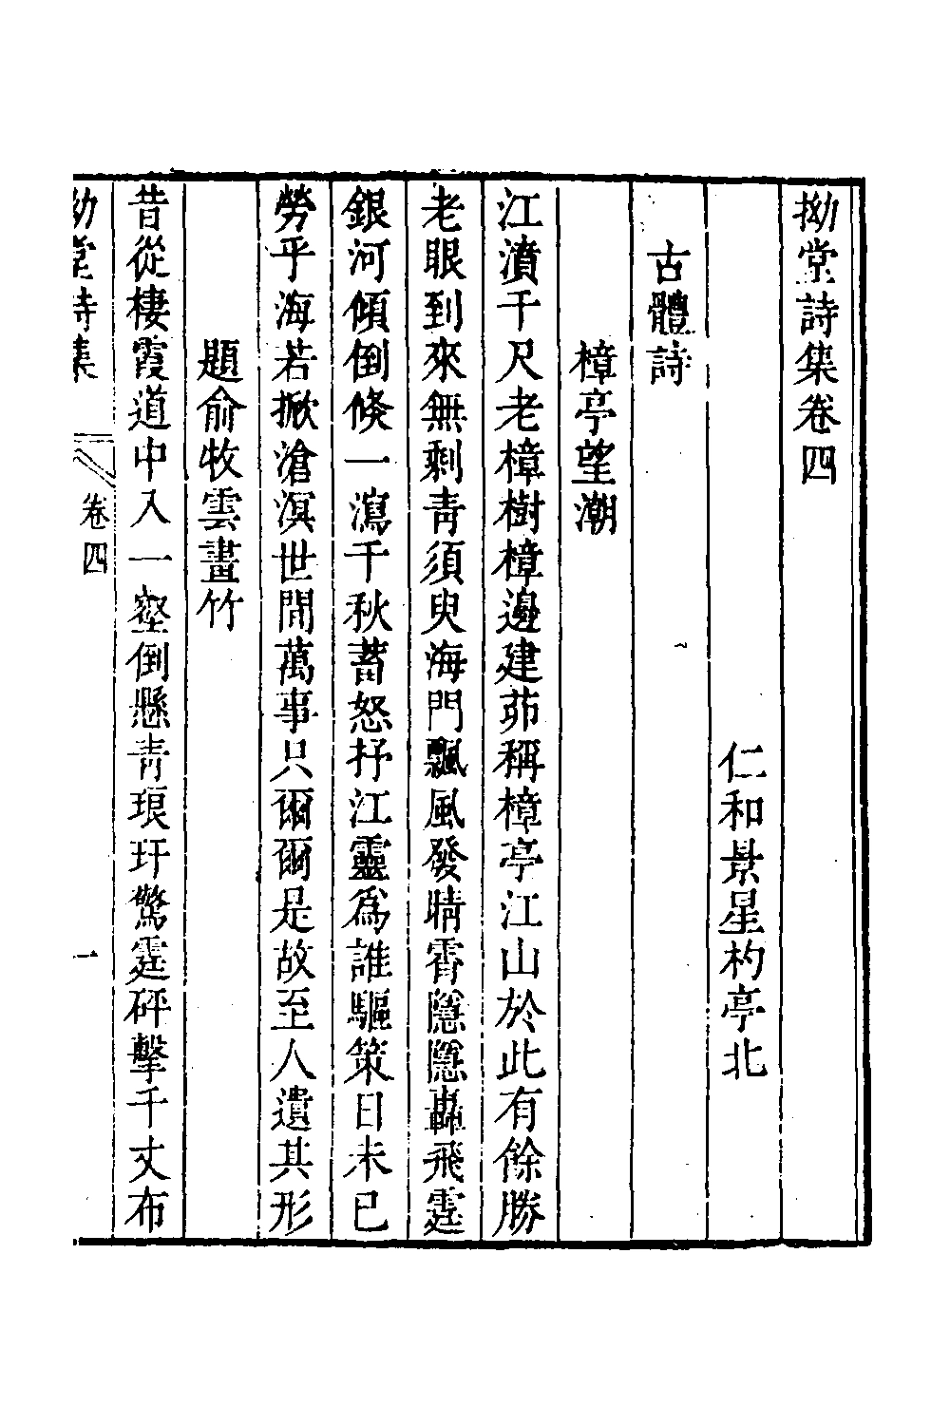 拗堂詩集卷四
仁和景星杓亭北
古體詩
樟亭望潮
江濆千尺老樟樹樟邊建茆稱樟亭江山於此有餘勝
老眼到來無剩青須臾海門飄風發晴霄隱隱轟飛霆
銀河傾倒倐一瀉千秋蓄怒抒江靈爲誰驅策日未已
勞乎海若掀滄溟世間萬事只爾爾是故至人遺其形
題俞牧雲畫竹
昔從棲霞道中入一壑倒懸青琅玕驚霆砰擊千丈布
拗堂詩集
卷四
一